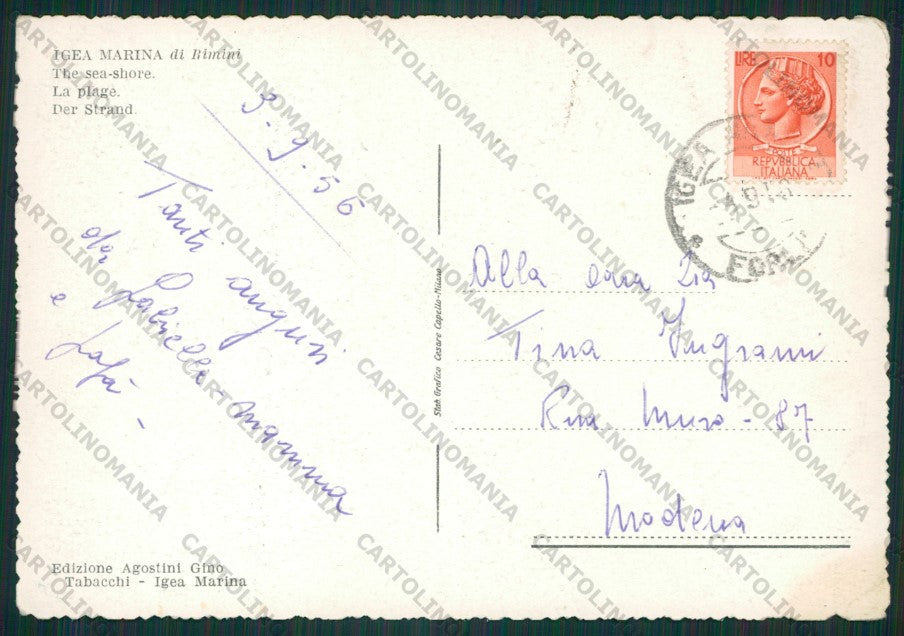 IGEA MARINA di Rimini
The sea-shore.
La plage.
Der Strand.
3-9-56
Tanti auguri
da Gabriella - mamma
e papà -
Stab. Grafico Cesare Capello-Milano
LIRE 10
POSTE
REPVBBLICA
ITALIANA
IGEA
FORLI
Alla cara Zia
Tina Ingrami
Rua Muro - 87
Modena
Edizione Agostini Gino
Tabacchi - Igea Marina
CARTOLINOMANIA